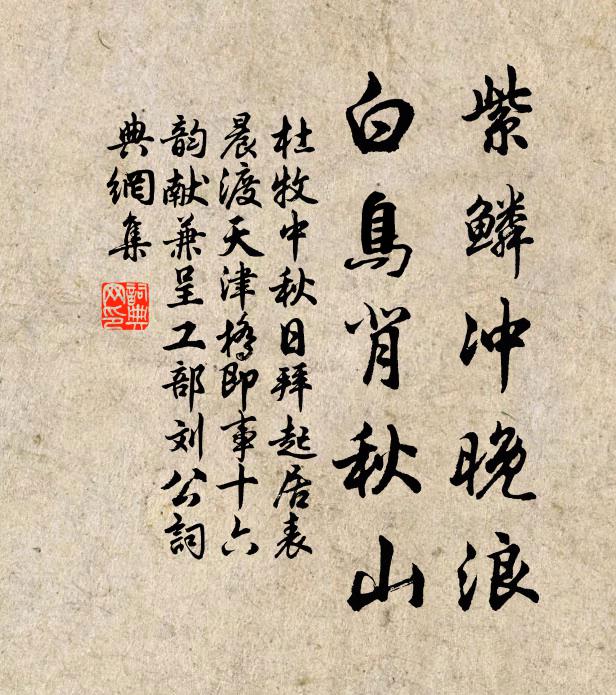 紫鳞冲晚浪
白鸟背秋山
杜牧中秋日拜起居表
晨渡天津桥即事十六
韵献兼呈工部刘公詞
典網集
詞典网印